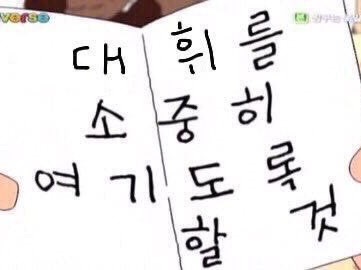 verse
대 휘를
소중히
여기도록
할 것